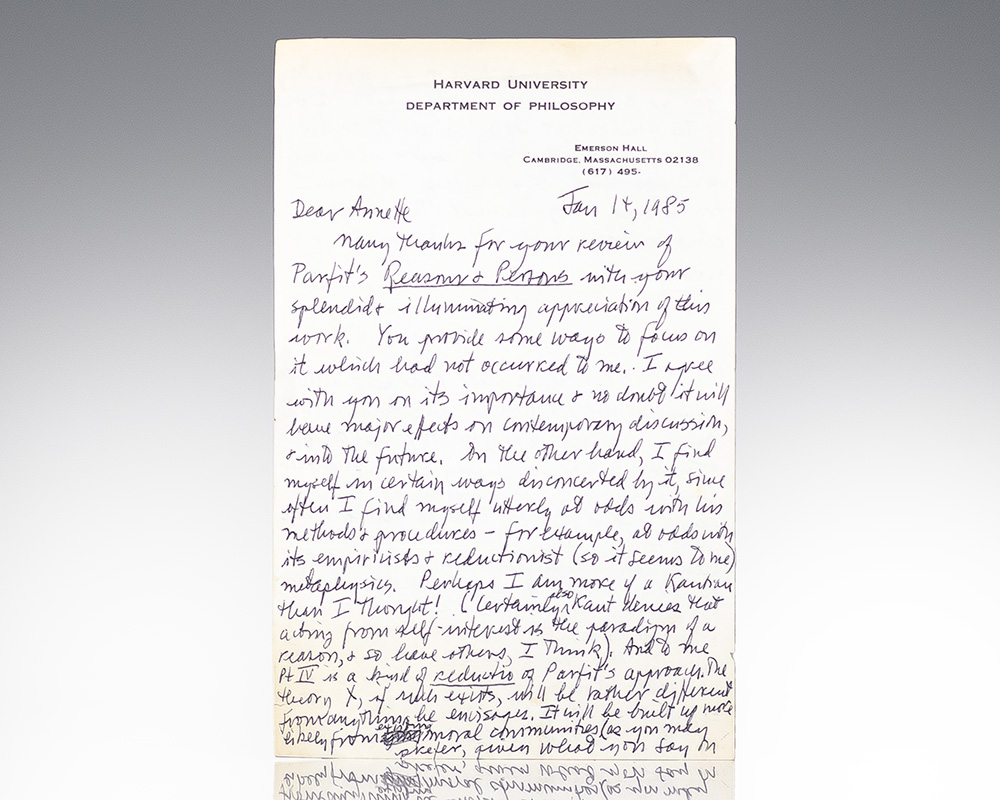 HARVARD UNIVERSITY
DEPARTMENT OF PHILOSOPHY
EMERSON HALL
CAMBRIDGE, MASSACHUSETTS 02138
(617) 495-
Jan 14, 1985
Dear Annette
Many thanks for your review of
Parfit's Reasons & Persons with your
splendid & illuminating appreciation of this
work. You provide some ways to focus on
it which had not occurred to me. I agree
with you on its importance & no doubt it will
have major effects on contemporary discussion,
& into the future. On the other hand, I find
myself in certain ways disconcerted by it, since
often I find myself utterly at odds with his
methods & procedures – for example, at odds with
its empiricists & reductionist (so it seems to me)
metaphysics. Perhaps I am more of a Kantian
than I thought! (Certainly also Kant denies that
acting from self-interest is the paradigm of a
reason, & so have others, I think). And to me
Pt IV is a kind of reductio of Parfit's approach. The
theory X, if such exists, will be rather different
from anything he envisages. It will be built up more
likely from existing moral communities (as you may
prefer, given what you say on